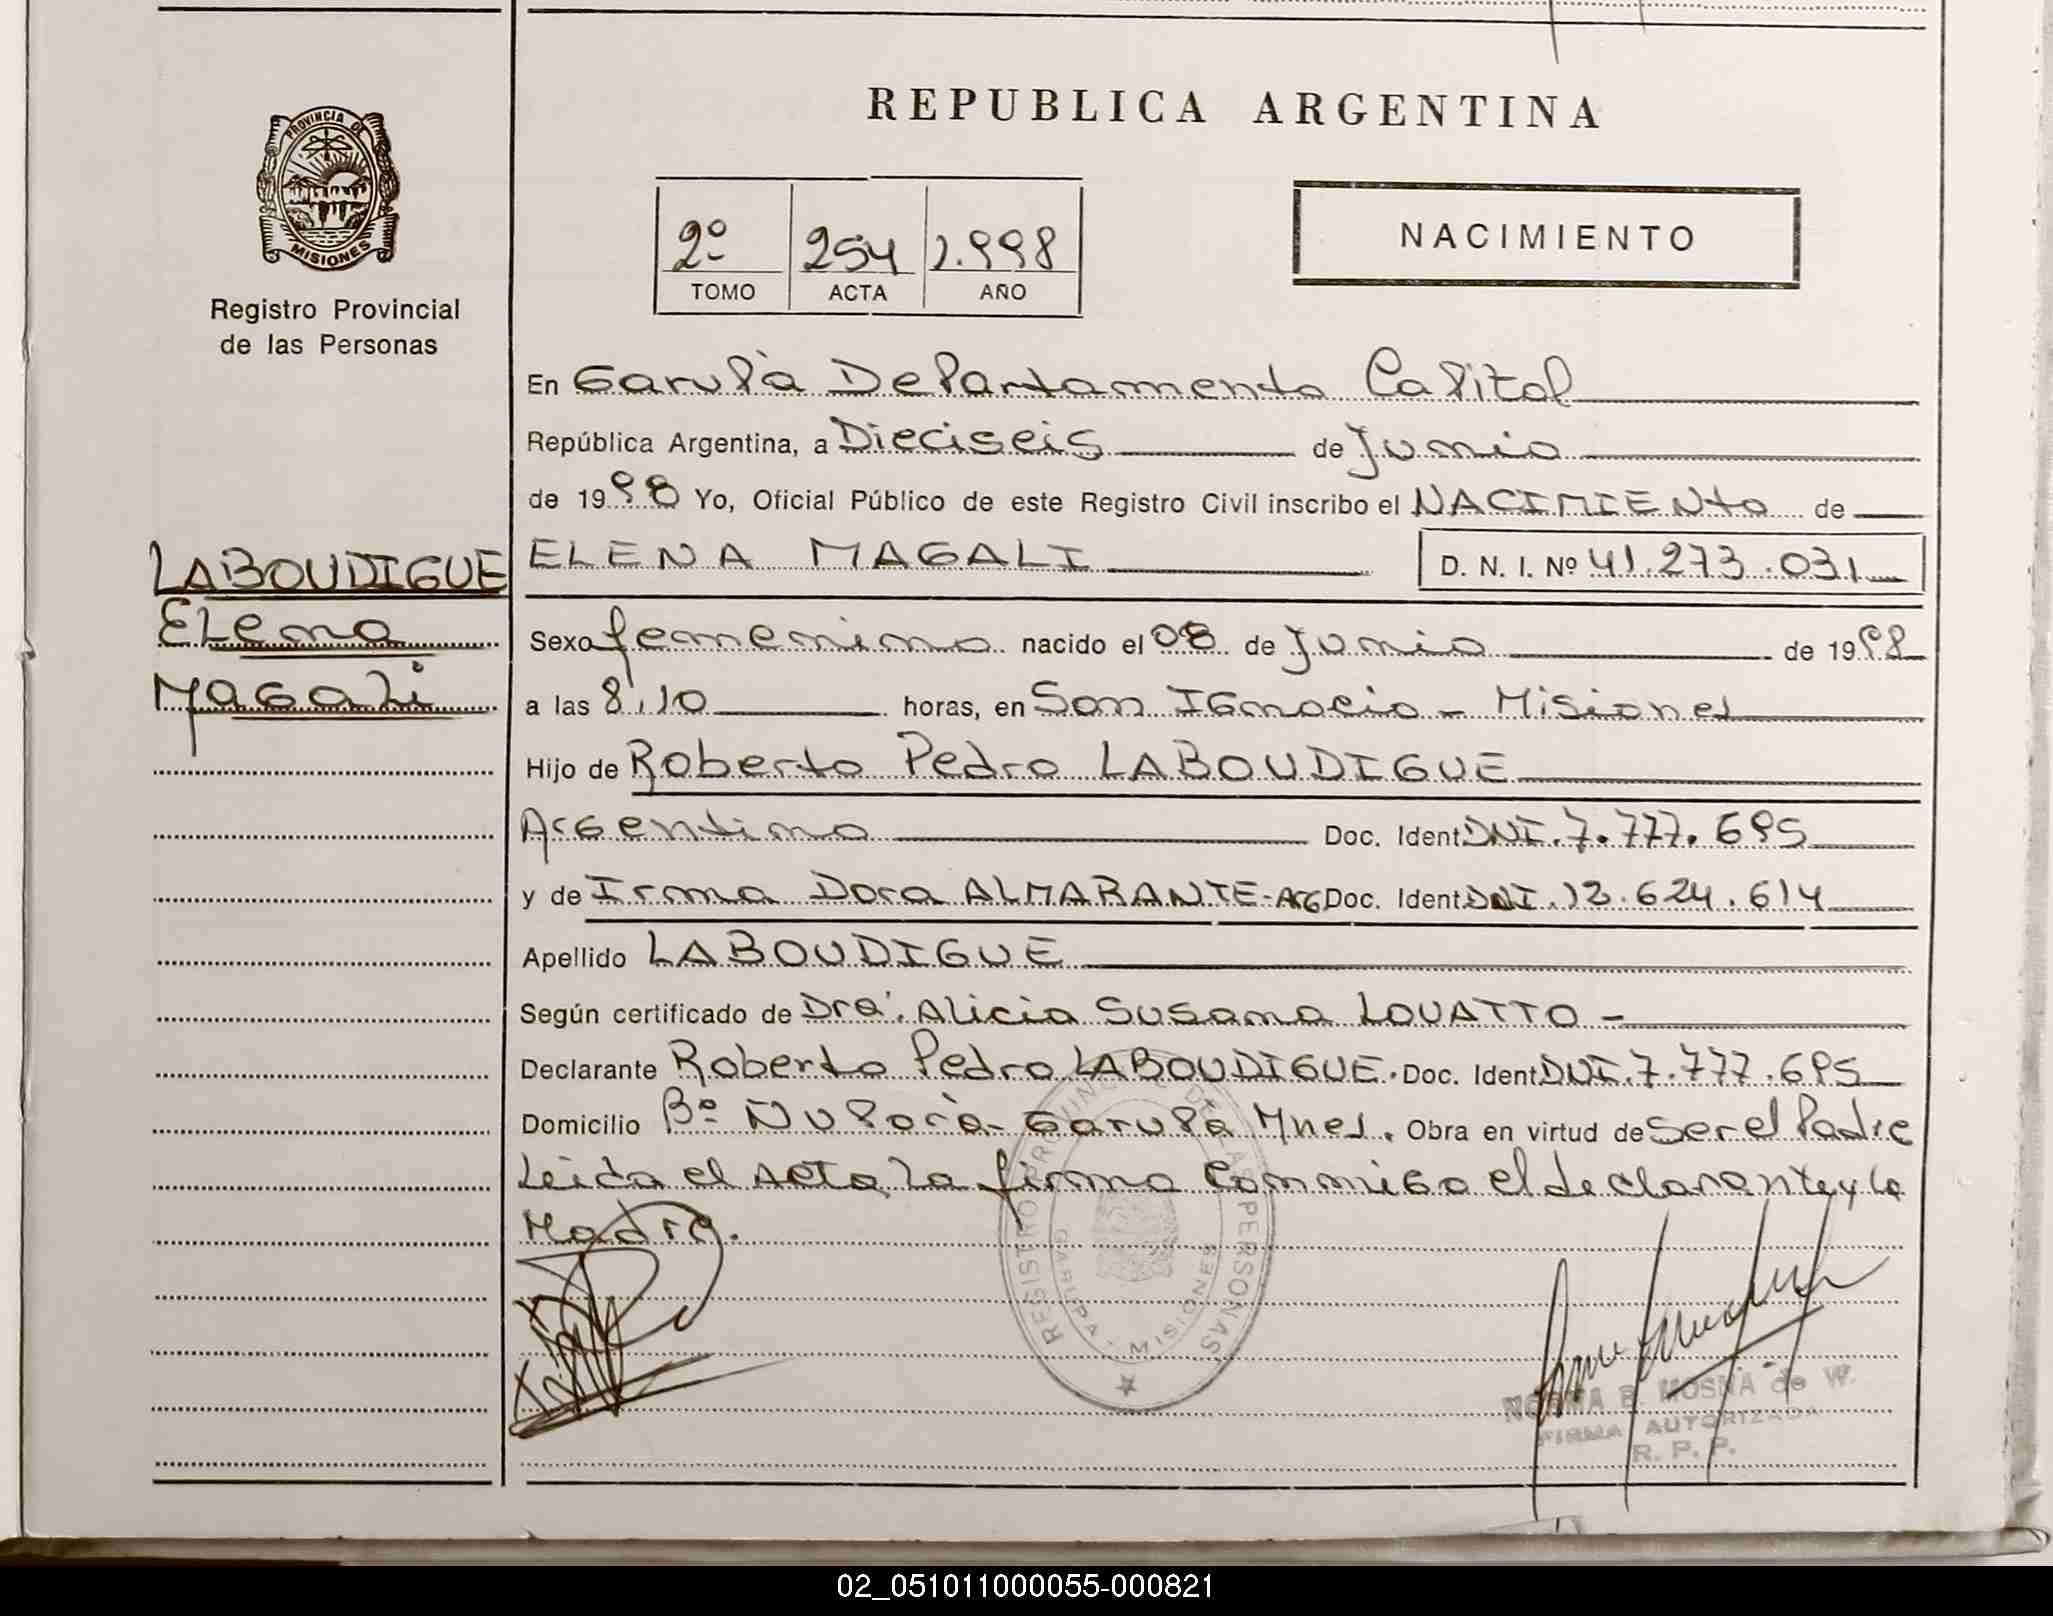 REPUBLICA ARGENTINA
PROVINCIA DE
MISIONES
Registro Provincial
de las Personas
2º 254 1.998
TOMO ACTA AÑO
NACIMIENTO
En Garupá Departamento Capital
República Argentina, a Dieciseis de Junio
de 1998 Yo, Oficial Público de este Registro Civil inscribo el NACIMIENto de
LABOUDIGUE
Elena
Magali
ELENA MAGALI D. N. I. Nº 41.273.031
Sexo femenino nacido el 08 de Junio de 1998
a las 8,10 horas, en San Ignacio - Misiones
Hijo de Roberto Pedro LABOUDIGUE
Argentino Doc. Ident. DNI. 7.777.695
y de Irma Dora ALMARANTE - ARG Doc. Ident. DNI. 13.624.614
Apellido LABOUDIGUE
Según certificado de Dra. Alicia Susana LOVATTO -
Declarante Roberto Pedro LABOUDIGUE. Doc. Ident. DNI. 7.777.695
Domicilio Bº Ñu Porá - Garupá Mnes. Obra en virtud de ser el Padre
Leida el Acta, la firma conmigo el declarante y la
Madre.
REGISTRO PROVINCIAL DE LAS PERSONAS
GARUPA - MISIONES
NORMA B. MOSNA de W.
FIRMA AUTORIZADA
R. P. P.
02_051011000055-000821